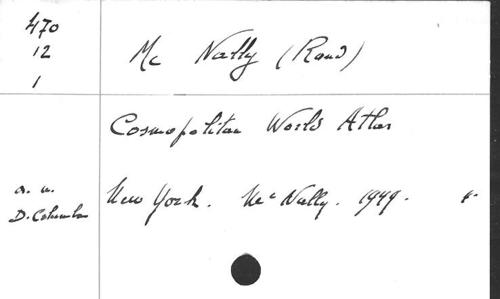 470
12
1
Mc Nally (Rand)
Cosmopolitan World Atlas
a. u.
D. Columba
New York. McNally. 1949.